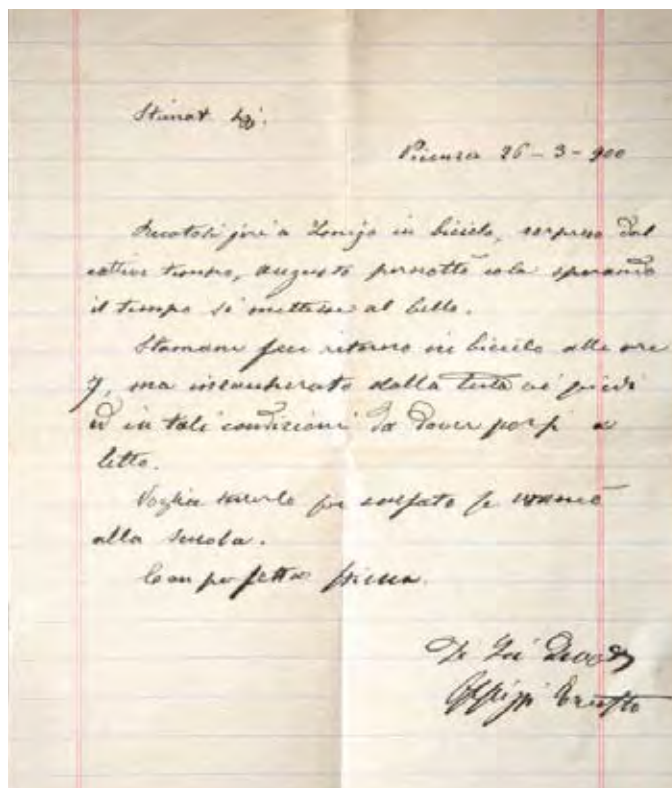 Stimat. Sig.
Vicenza 26-3-900
Recatosi jeri a Lonigo in biciclo, sorpreso dal
cattivo tempo, Augusto pernottò colà sperando
il tempo si mettesse al bello.
Stamane fece ritorno in biciclo alle ore
7, ma inzaccherato dalla testa ai piedi
ed in tali condizioni da dover porsi a
letto.
Voglia averlo per scusato se mancò
alla scuola.
Con perfetta stima.
Di Lei Devot